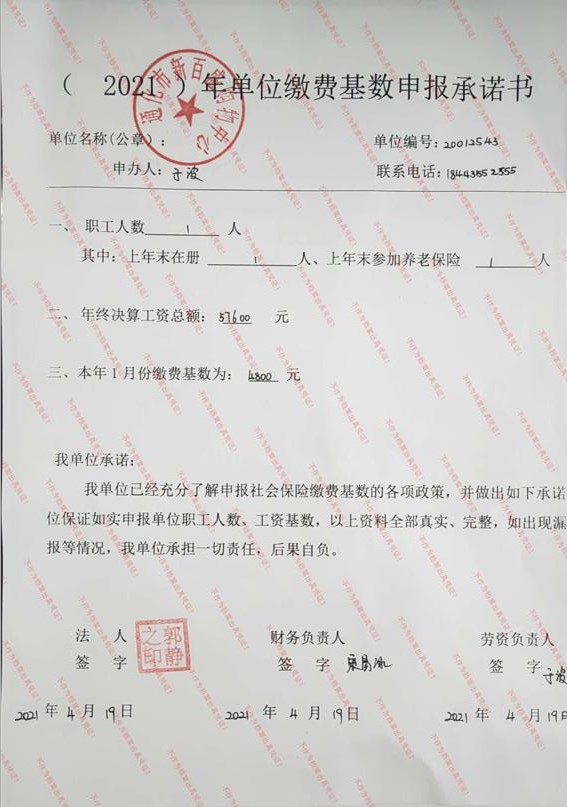 （ 2021 ）年单位缴费基数申报承诺书
单位名称(公章）： 单位编号: 20012543
申办人: 于波 联系电话:
一、 职工人数 1 人
其中：上年末在册 1 人、上年末参加养老保险 1 人
二、 年终决算工资总额: 57600 元
三、本年1月份缴费基数为: 4800 元
我单位承诺:
我单位已经充分了解申报社会保险缴费基数的各项政策，并做出如下承诺
位保证如实申报单位职工人数、工资基数，以上资料全部真实、完整，如出现漏
报等情况，我单位承担一切责任，后果自负。
法 人 财务负责人 劳资负责人
签 字 郭静之印 签 字 签 字 于波
2021 年 4 月 19 日 2021 年 4 月 19 日 2021 年 4 月 19 日